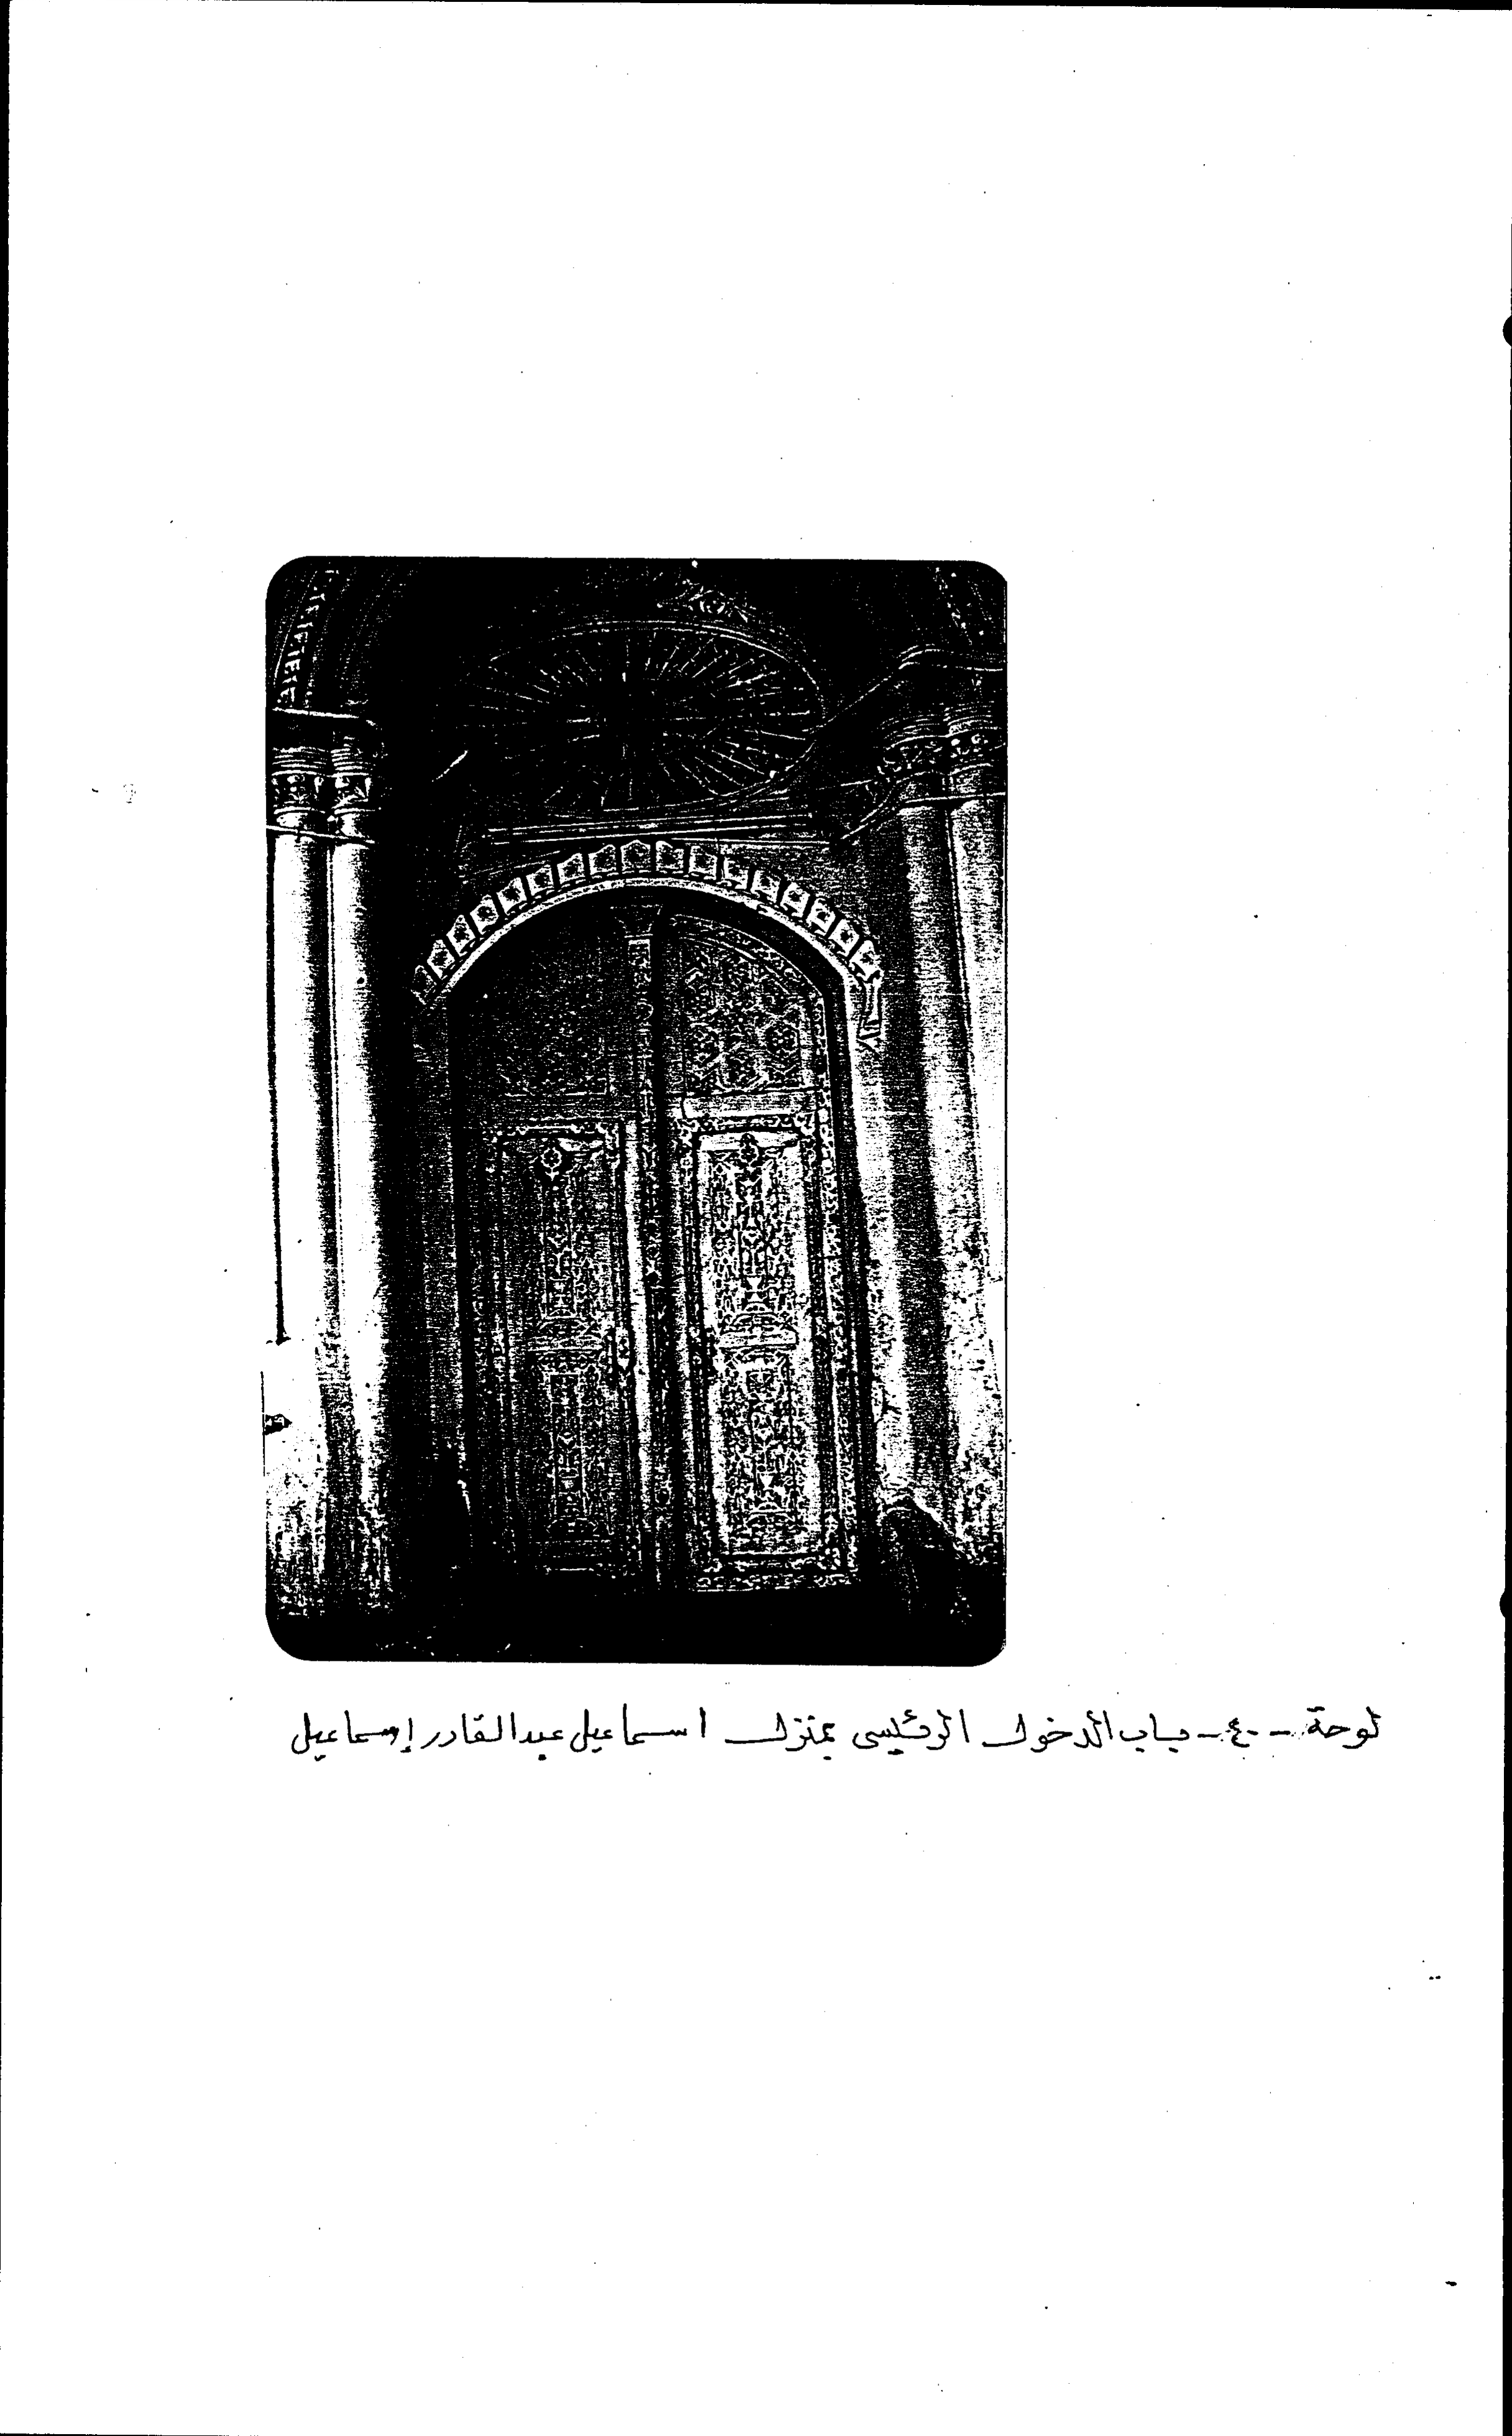 لوحة - ٤٠ - باب الدخول الرئيسى بمنزل اسماعيل عبد القادر إسماعيل